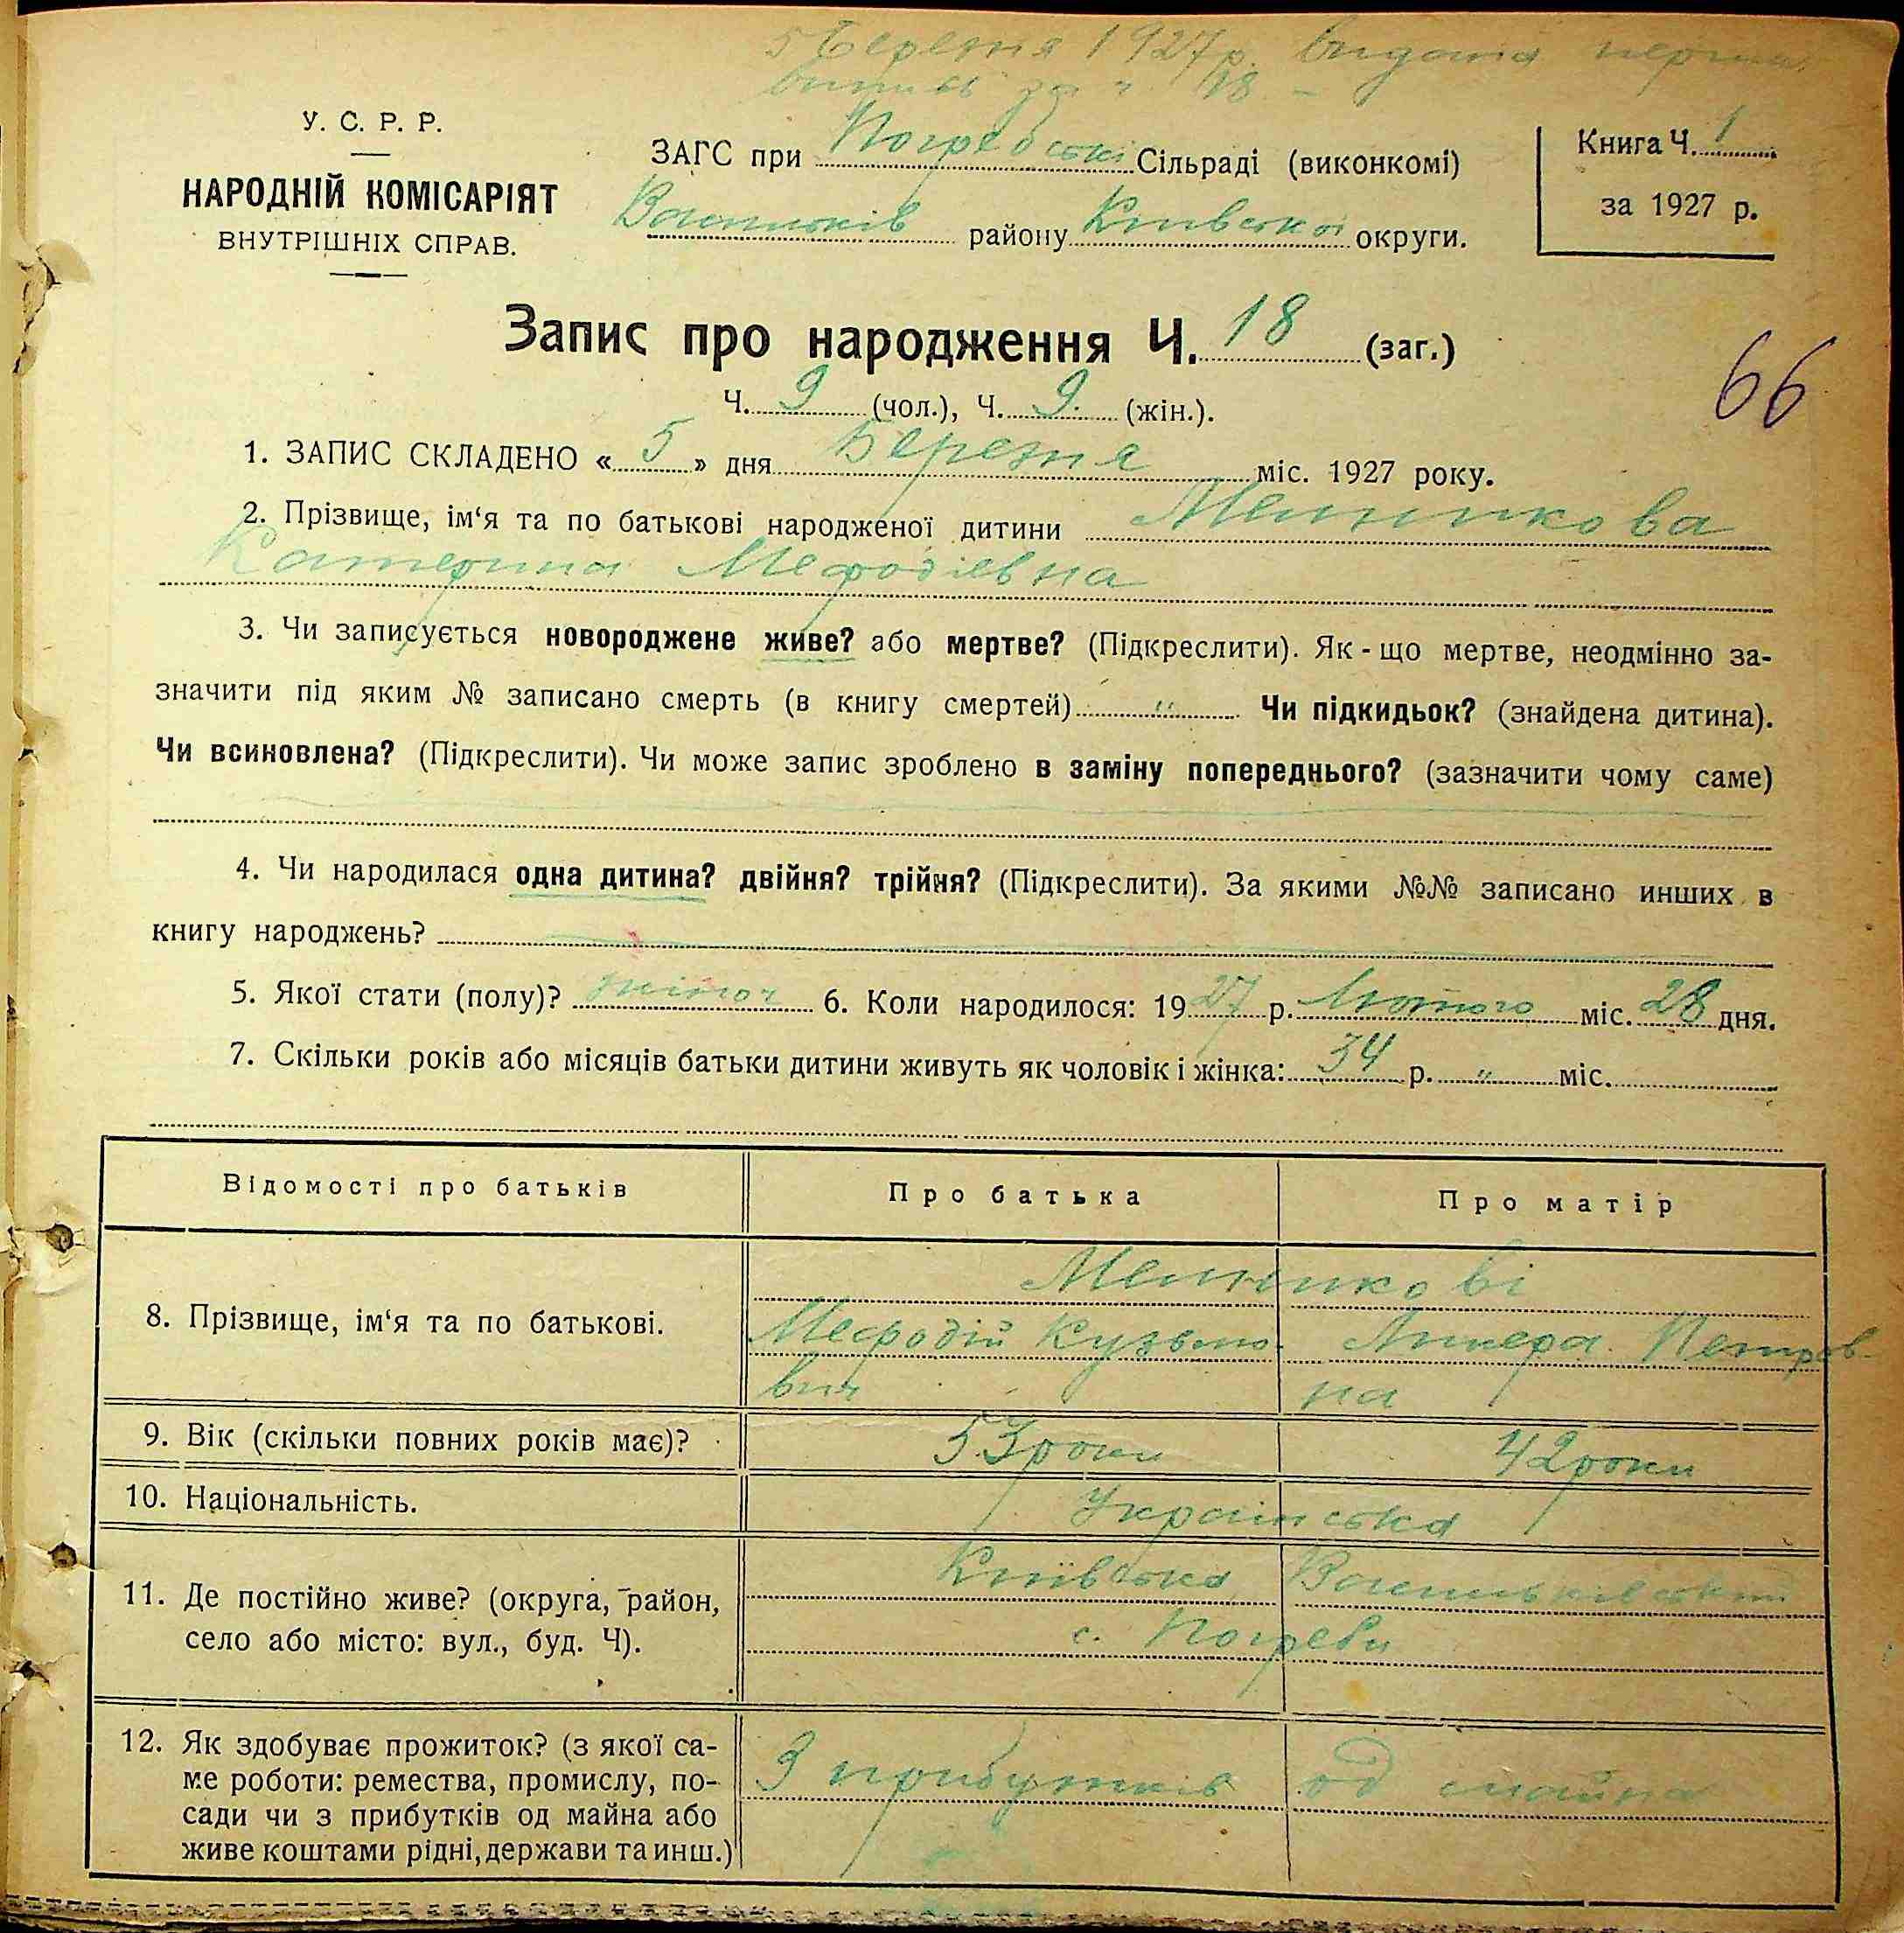 5 Березня 1927 р. видана перша
випись за ч. 18 –
У. С. Р. Р.
НАРОДНІЙ КОМІСАРІЯТ
ВНУТРІШНІХ СПРАВ.
ЗАГС при Погребські Сільраді (виконкомі)
Васильків району Київської округи.
Книга Ч. 1
за 1927 р.
Запис про народження Ч. 18 (заг.)
66
Ч. 9 (чол.), Ч. 9. (жін.).
1. ЗАПИС СКЛАДЕНО « 5 » дня Березня міс. 1927 року.
2. Прізвище, ім‘я та по батькові народженої дитини
Катерина Мефодієвна
3. Чи записується новороджене живе? або мертве? (Підкреслити). Як - що мертве, неодмінно за-
значити під яким № записано смерть (в книгу смертей) " Чи підкидьок? (знайдена дитина).
Чи всиновлена? (Підкреслити). Чи може запис зроблено в заміну попереднього? (зазначити чому саме)
4. Чи народилася одна дитина? двійня? трійня? (Підкреслити). За якими №№ записано инших в
книгу народжень?
5. Якої стати (полу)? жіноч 6. Коли народилося: 1927 р. Лютого міс. 28 дня.
7. Скільки років або місяців батьки дитини живуть як чоловік і жінка: 34 р. " міс.
Відомості про батьків Про батька Про матір
8. Прізвище, ім‘я та по батькові.
Мефодій Кузьмо- Петров-
вич на
9. Вік (скільки повних років має)? 53 роки 42 роки
10. Національність. Українська
11. Де постійно живе? (округа, район,
село або місто: вул., буд. Ч).
Київська Васильківський
с. Погреби
12. Як здобуває прожиток? (з якої са-
ме роботи: ремества, промислу, по-
сади чи з прибутків од майна або
живе коштами рідні, держави та инш.)
З прибутків од майна